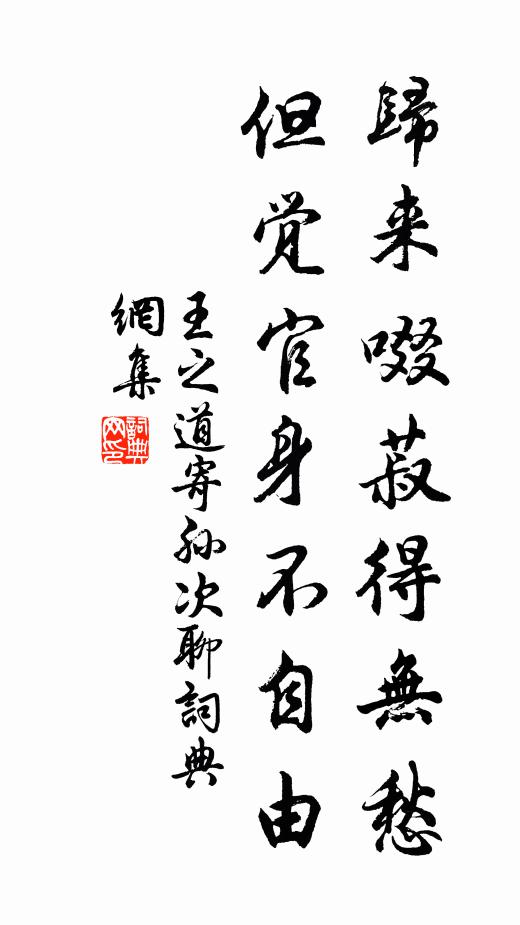 歸来啜菽得無愁
但觉官身不自由
王之道寄孙次聊詞典
網集
詞典網印